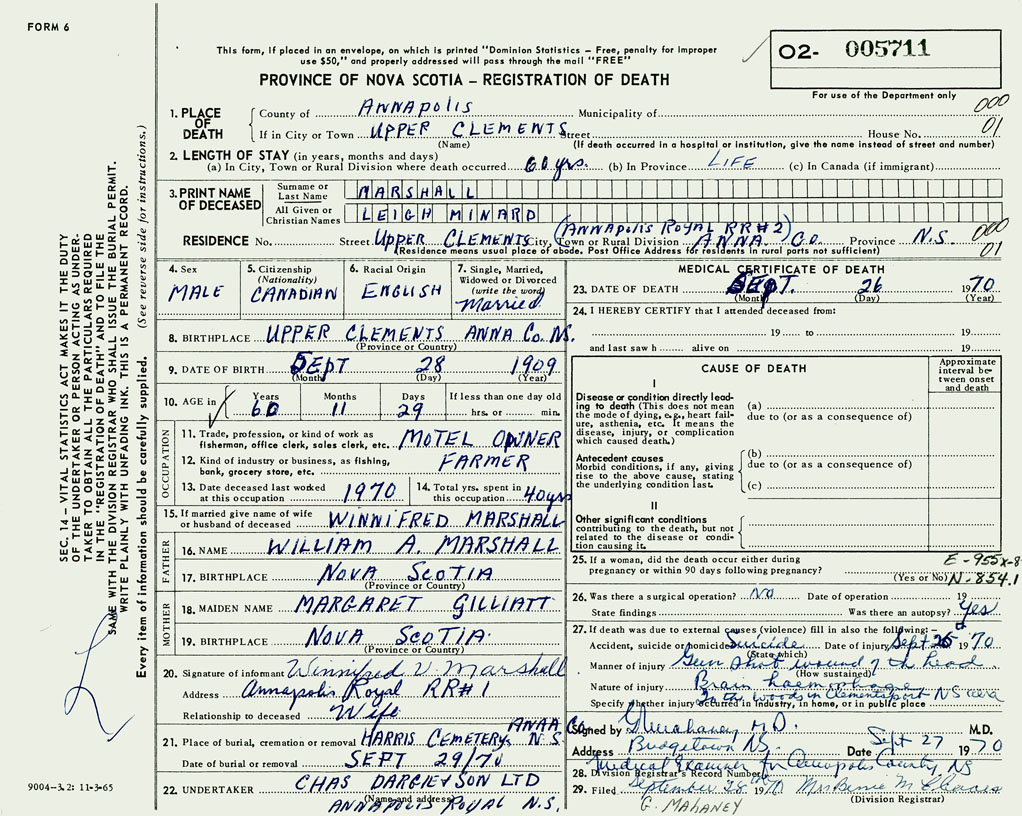 FORM 6
This form, if placed in an envelope, on which is printed "Dominion Statistics – Free, penalty for improper
use $50," and properly addressed will pass through the mail "FREE"
PROVINCE OF NOVA SCOTIA – REGISTRATION OF DEATH
02- 005711
For use of the Department only
000
01
1. PLACE OF DEATH
County of ANNAPOLIS Municipality of
If in City or Town UPPER CLEMENTS Street House No.
(Name) (If death occurred in a hospital or institution, give the name instead of street and number)
2. LENGTH OF STAY (in years, months and days)
(a) In City, Town or Rural Division where death occurred 60 yrs. (b) In Province LIFE (c) In Canada (if immigrant)
3. PRINT NAME OF DECEASED
Surname or Last Name MARSHALL
All Given or Christian Names LEIGH MINARD
(ANNAPOLIS ROYAL RR#2)
RESIDENCE No. Street UPPER CLEMENTS City, Town or Rural Division ANNA. CO. Province N.S. 000
(Residence means usual place of abode. Post Office Address for residents in rural parts not sufficient) 01
4. Sex MALE
5. Citizenship (Nationality) CANADIAN
6. Racial Origin ENGLISH
7. Single, Married, Widowed or Divorced (write the word) Married
8. BIRTHPLACE UPPER CLEMENTS ANNA Co. NS.
(Province or Country)
9. DATE OF BIRTH SEPT 28 1909
(Month) (Day) (Year)
10. AGE in Years Months Days If less than one day old
60 11 29 hrs. or min.
OCCUPATION
11. Trade, profession, or kind of work as fisherman, office clerk, sales clerk, etc. MOTEL OWNER
12. Kind of industry or business, as fishing, bank, grocery store, etc. FARMER
13. Date deceased last worked at this occupation 1970
14. Total yrs. spent in this occupation 40 yrs
15. If married give name of wife or husband of deceased WINNIFRED MARSHALL
FATHER
16. NAME WILLIAM A. MARSHALL
17. BIRTHPLACE NOVA SCOTIA
(Province or Country)
MOTHER
18. MAIDEN NAME MARGARET GILLIATT
19. BIRTHPLACE NOVA SCOTIA
(Province or Country)
20. Signature of informant Winnifred V. Marshall
Address Annapolis Royal RR#1
Relationship to deceased Wife
ANNA Co.
21. Place of burial, cremation or removal HARRIS CEMETERY, N.S.
Date of burial or removal SEPT 29/70
22. UNDERTAKER CHAS DARGIE & SON LTD
(Name and address)
ANNAPOLIS ROYAL N.S.
MEDICAL CERTIFICATE OF DEATH
23. DATE OF DEATH SEPT. 26 1970
(Month) (Day) (Year)
24. I HEREBY CERTIFY that I attended deceased from:
19 to 19
and last saw h alive on 19
CAUSE OF DEATH
Approximate interval between onset and death
I
Disease or condition directly leading to death (This does not mean the mode of dying, e.g., heart failure, asthenia, etc. It means the disease, injury, or complication which caused death.)
(a)
due to (or as a consequence of)
Antecedent causes
Morbid conditions, if any, giving rise to the above cause, stating the underlying condition last.
(b)
due to (or as a consequence of)
(c)
II
Other significant conditions
contributing to the death, but not related to the disease or condition causing it.
25. If a woman, did the death occur either during
pregnancy or within 90 days following pregnancy?
(Yes or No)
E-955x-8
N-854.1
26. Was there a surgical operation? NO Date of operation 19
State findings Was there an autopsy? Yes
27. If death was due to external causes (violence) fill in also the following:
Accident, suicide or homicide Suicide Date of injury Sept 26 1970
(State which)
Manner of injury Gun shot wound of the head
(How sustained)
Nature of injury Brain haemorrhage
Specify whether injury occurred in industry, in home, or in public place
In the woods in Clementsport NS area
Signed by G Mahaney, M.D. M.D.
Address Bridgetown NS. Date Sept 27 1970
Medical Examiner for Annapolis County, NS
28. Division Registrar's Record Number
29. Filed September 28 1970 Mrs Bernie M
(Division Registrar)
G. MAHANEY
SEC. 14 – VITAL STATISTICS ACT MAKES IT THE DUTY
OF THE UNDERTAKER OR PERSON ACTING AS UNDER-
TAKER TO OBTAIN ALL THE PARTICULARS REQUIRED
IN THE "REGISTRATION OF DEATH" AND TO FILE THE
SAME WITH THE DIVISION REGISTRAR WHO SHALL ISSUE THE BURIAL PERMIT.
WRITE PLAINLY WITH UNFADING INK. THIS IS A PERMANENT RECORD.
Every item of information should be carefully supplied. (See reverse side for instructions.)
9004-3.2: 11-3-65